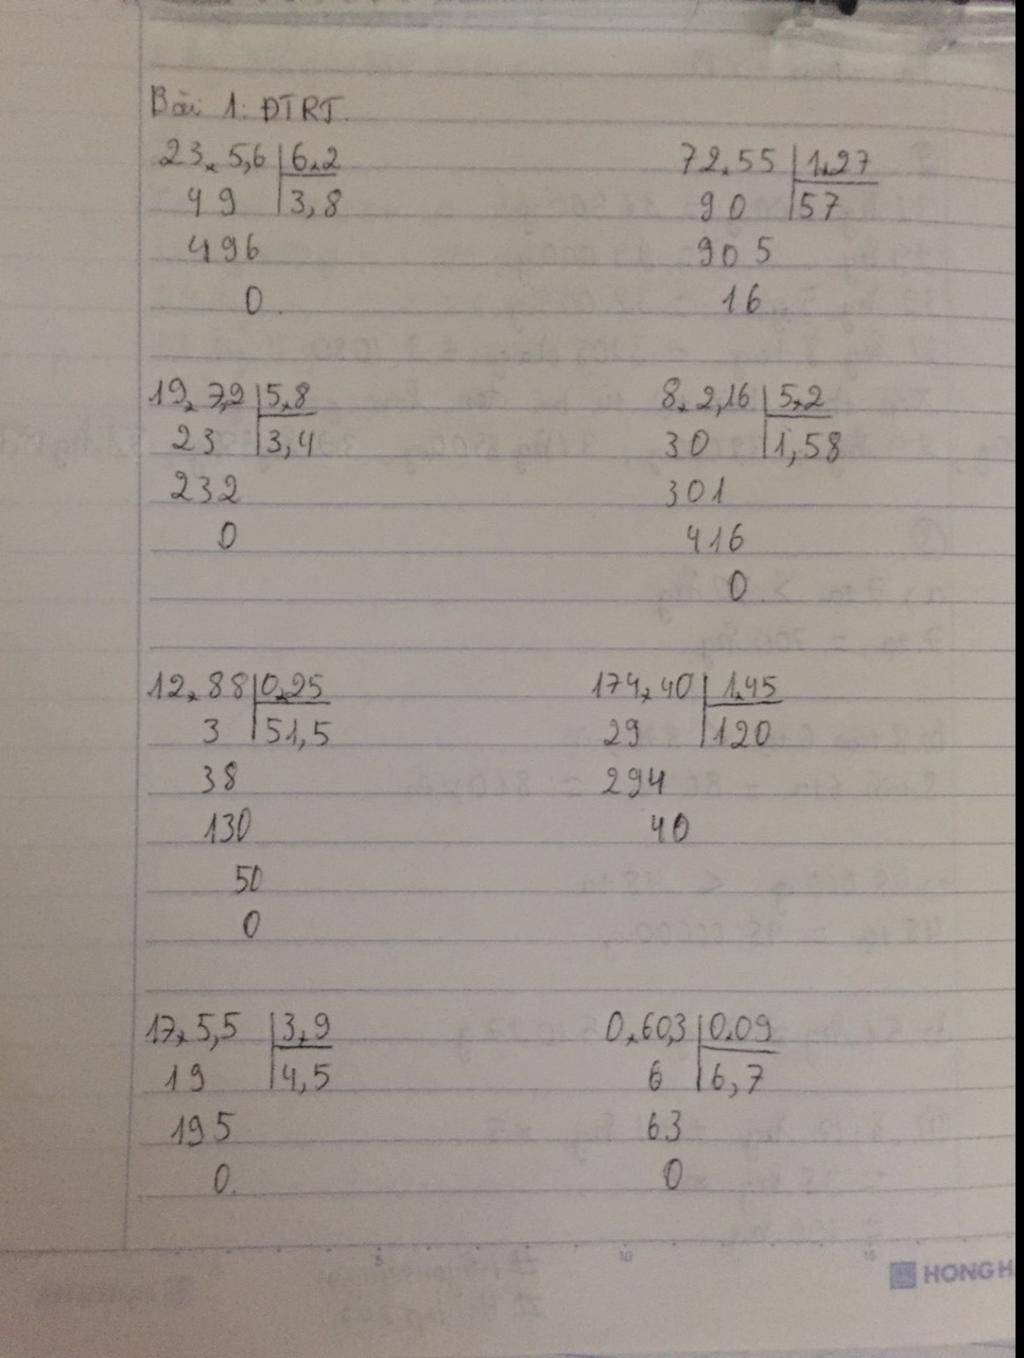 Bài 1: ĐTRT.
23,5,6 | 6,2
49 | 3,8
496
0.
72,55 | 1,27
90 | 57
905
16
19,7,2 | 5,8
23 | 3,4
232
0
8,2,16 | 5,2
30 | 1,58
301
416
0
12,88 | 0,25
3 | 51,5
38
130
50
0
174,40 | 1,45
29 | 120
294
40
17,5,5 | 3,9
19 | 4,5
195
0.
0,60,3 | 0,09
6 | 6,7
63
0
5 10 15
HONG H